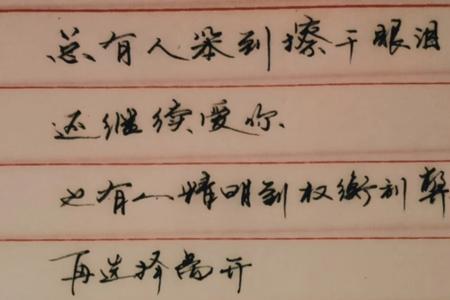 总有人笨到擦干眼泪
还继续爱你
也有人精明到权衡利弊
再选择离开